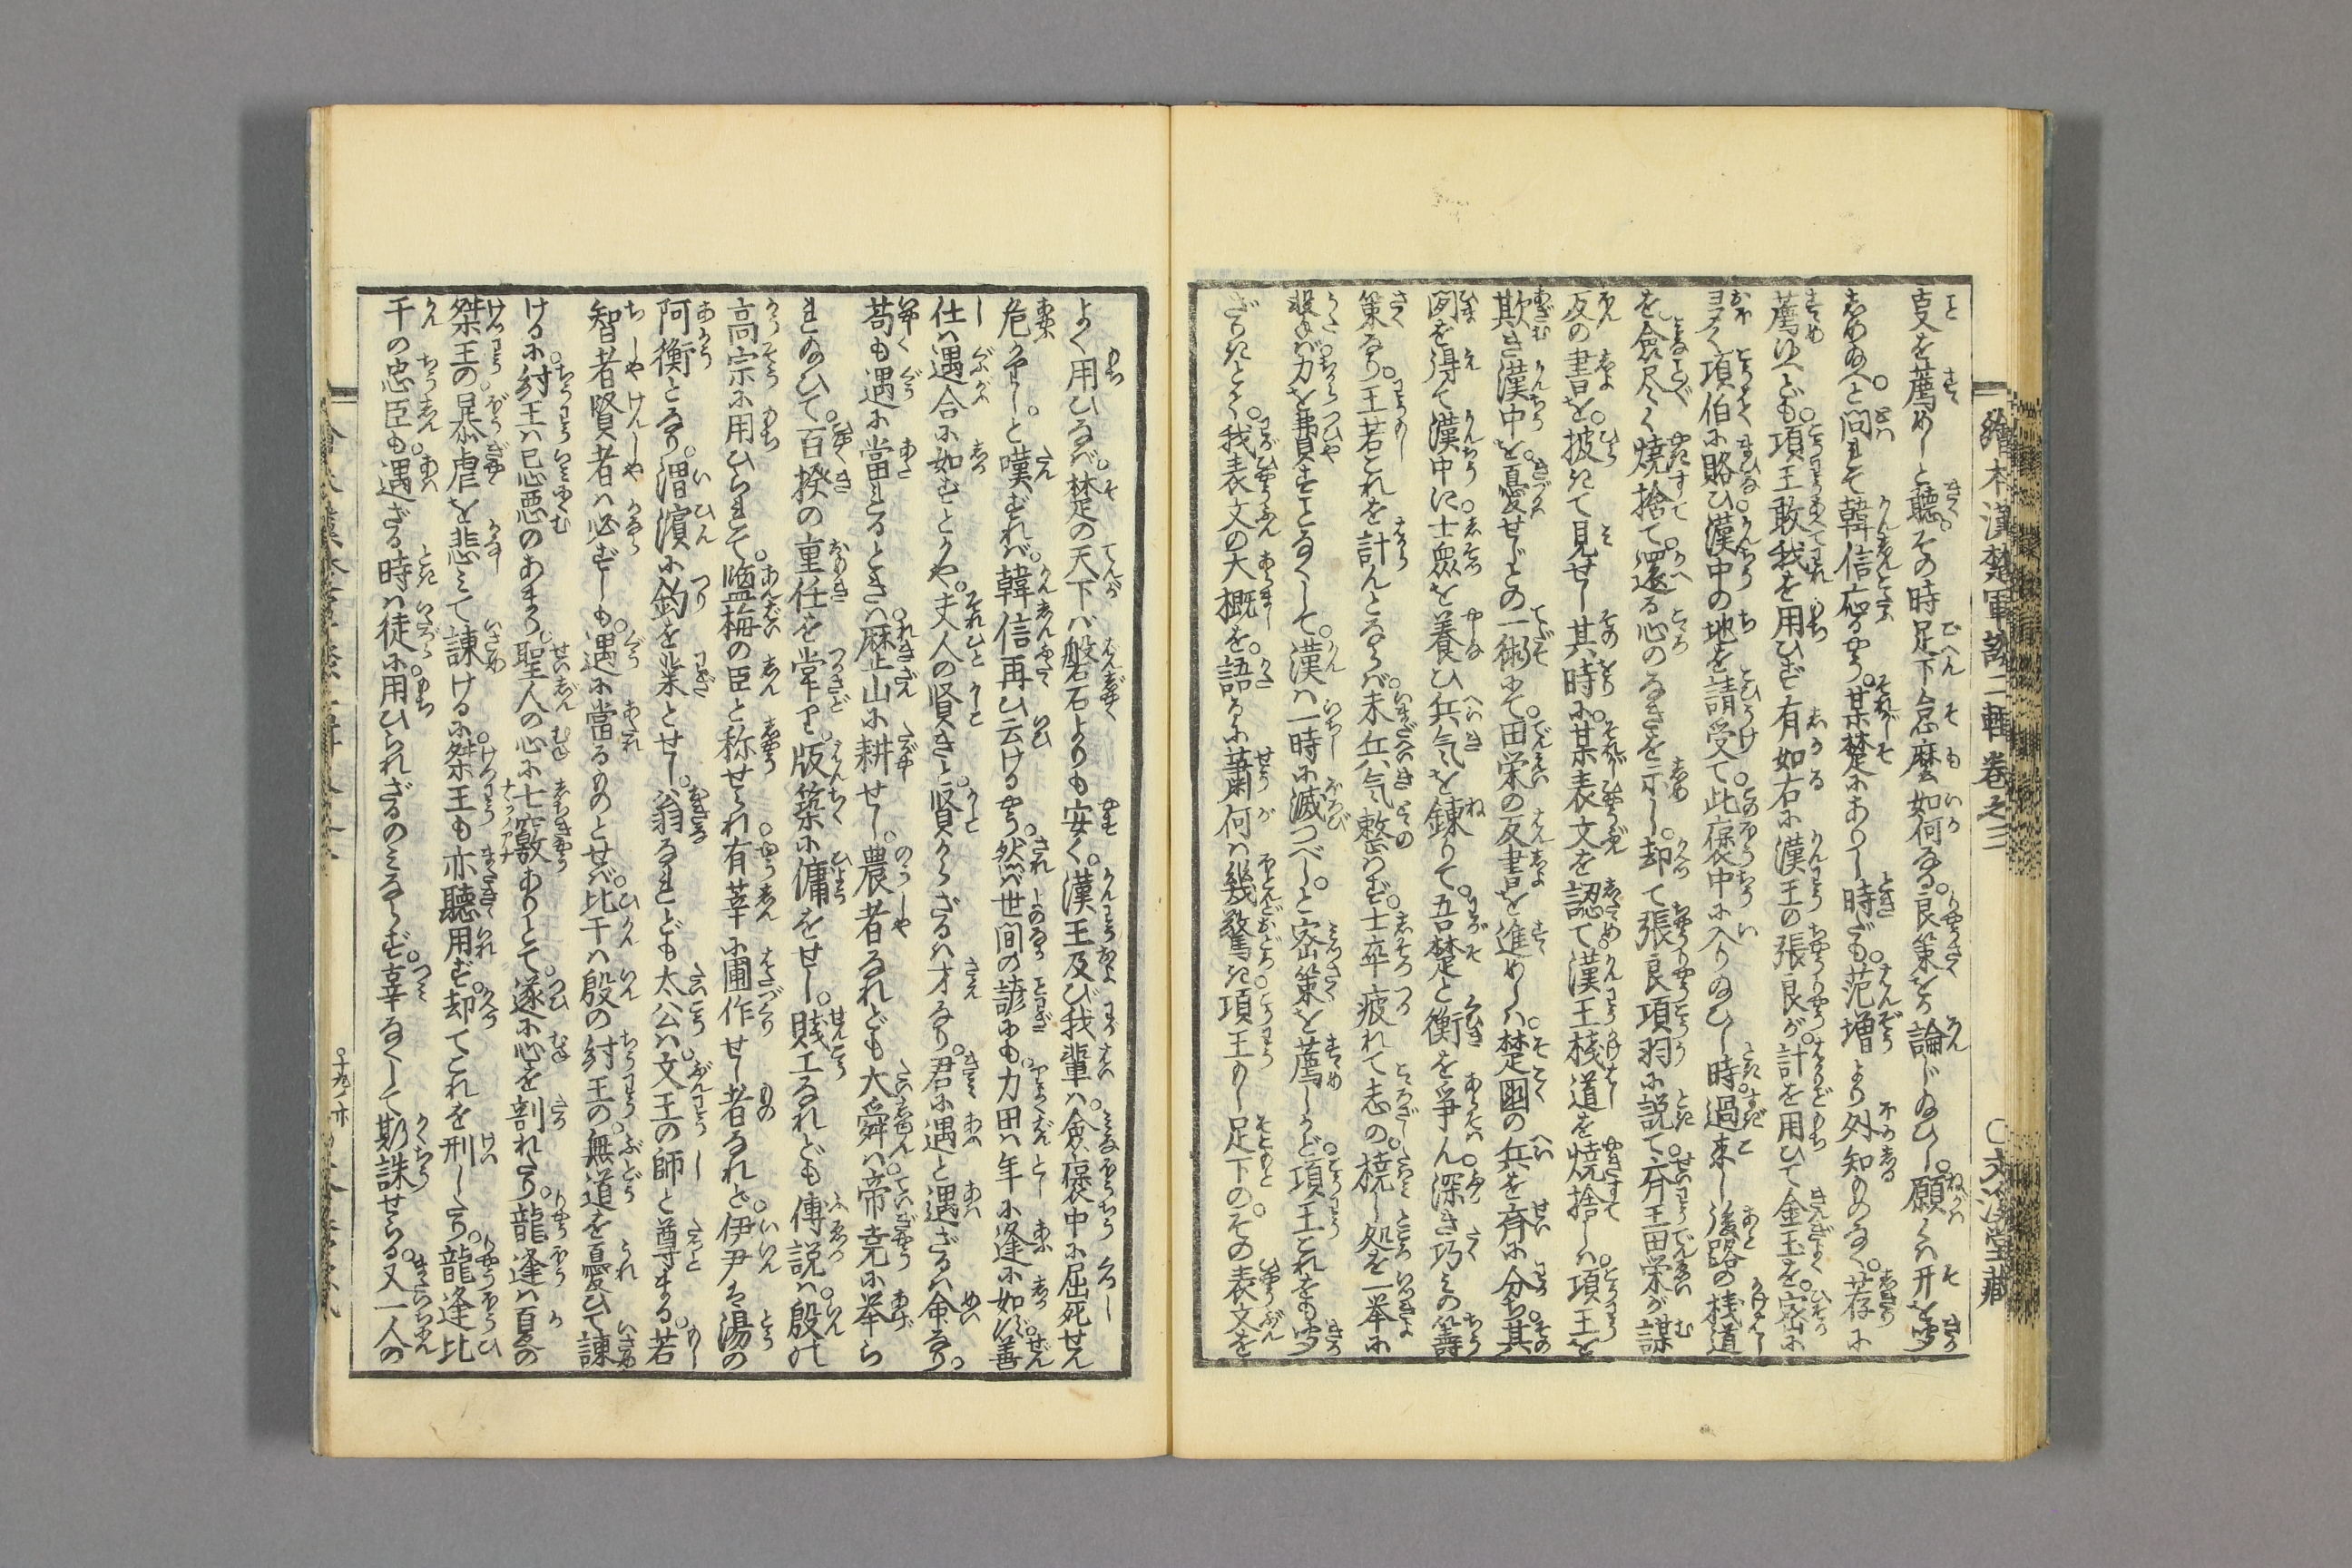 繪本漢楚軍談二輯卷之三 ○文溪堂藏
叓を薦めしと聽。その時足下怎麼如何なる。良策をか論じ給ひし。願くは开を聞
しめ給へと。問れて韓信応るやう。某楚にありし時だも。范増より外知ものなく。荐に
薦めゆへども。項王敢我を用ひず。有如右に漢王の張良が。計を用ひて金玉を。密に
多く項伯に賂ひ。漢中の地を請受て。此褒中に入り給ひし時。過来し後路の桟道
を。悉尽く焼捨て。還る心のなきを示し。却て張良項羽に説て。斉王田栄が謀
反の書を。披きて見せし其時に。某表文を認て。漢王桟道を焼捨しは。項王を
欺き漢中を。憂せじとの一術にて。田栄の反書を進めしは。楚國の兵を斉に分ち。其
図を得て漢中に。士衆を養ひ兵気を錬りて。吾楚と衡を爭ん。深き巧みの籌
策なり。王若これを計んとならば。未兵気整はず。士卒疲れて志の。撓し処を一挙に
撃ば。力を費すことなくして。漢は一時に滅つべし。と密策を薦しかど。項王これをも聞
ざりきとて。我表文の大概を。語るに蕭何は幾驚き。項王もし足下の。その表文を
よく用ひなば。楚の天下は般石よりも安く。漢王及び我輩は。悉褒中に屈死せん
危かりし。と嘆ずれば。韓信再び云けるやう。然ば世间の諺にも。力田は年に逢に如ず。善
仕は遇合に如ずとかや。夫人の賢きと。賢からざるは才なり。君に遇と遇ざるは命なり。
苟も遇に當れるときは。歴山に耕せし。農者なれども大舜は。帝尭に挙ら
れ給ひて。百揆の重任を掌り。版築に傭をせし。賤工なれども傅説は。殷の
高宗に用ひられて。塩梅の臣と称せられ。有莘に圃作せし者なれど。伊尹は湯の
阿衡となり。渭濱に釣を業とせし。翁なれども太公は。文王の師と尊まる。若
智者賢者は必ずしも。遇に當るものとせば。比干は殷の紂王の。無道を憂ひて諌
けるに。紂王は忌悪のあまり。聖人の心に七竅ありとて。遂に心を剖れたり。龍逢は夏の
桀王の。暴虐を悲みて諌けるに。桀王も亦聽用ず。却てこれを刑したり。龍逢比
干の忠臣も。遇ざる時は徒に。用ひられざるのみならず。辜なくして斯誅せらる。又一人の
○十九ノ亦